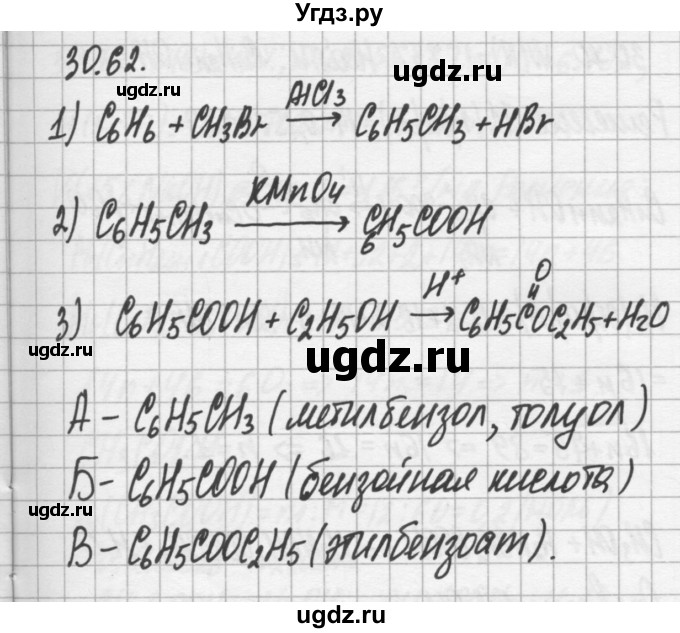 Угдз.ру
30.62.
ugdz.ru ugdz.ru
1) C6H6 + CH3Br AlCl3 → C6H5CH3 + HBr
2) C6H5CH3 KMnO4 → C6H5COOH
3) C6H5COOH + C2H5OH H+ → C6H5COC2H5 + H2O
O
ugdz.ru ugdz.ru
А – C6H5CH3 (метилбензол, толуол)
Б – C6H5COOH (бензойная кислота)
ugdz.ru
В – C6H5COOC2H5 (этилбензоат).
ugdz.ru ugdz.ru